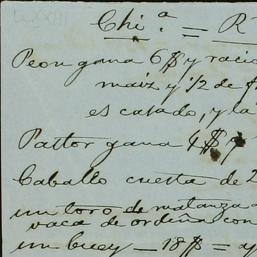 LXXIII
Chi.ª = R
Peon gana 6$ y racio
maiz y 1/2 de f
es casado, y la
Pastor gana 4$ y
Caballo cuesta de 2
un toro de matanza
vaca de ordeña con
un buey — 18$ = y